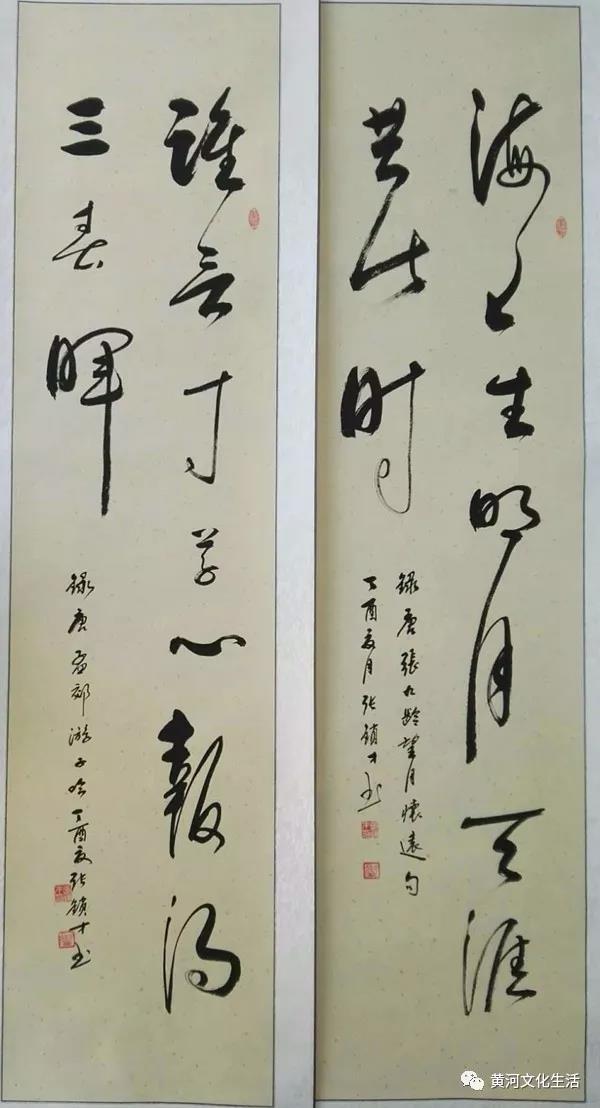 海上生明月天涯
共此时
録唐張九齡望月懷遠句
丁酉夏月张鎖才书
誰言寸草心報得
三春暉
録唐孟郊游子吟丁酉夏张鎖才书
黄河文化生活